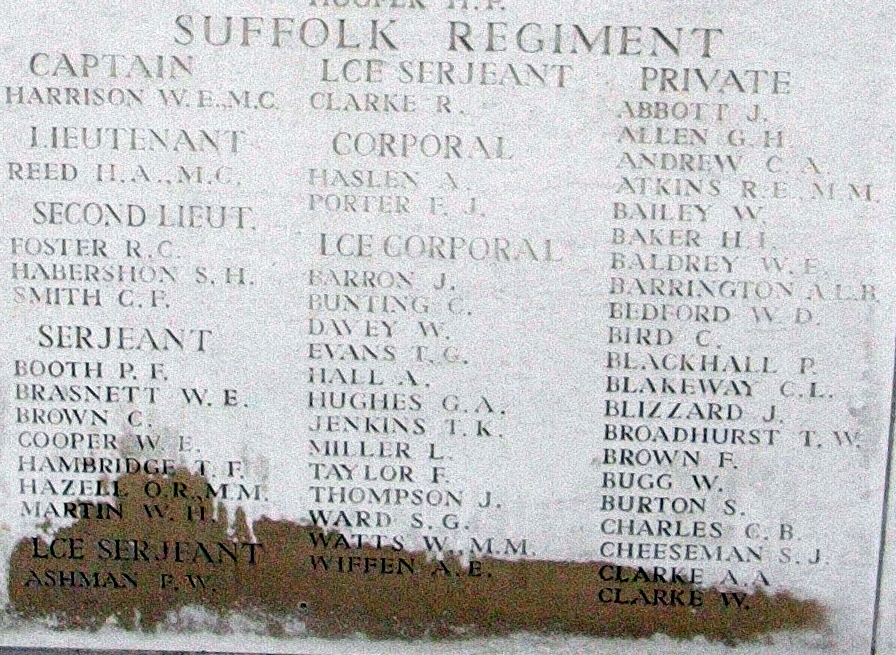 HOOPER H.F.
SUFFOLK REGIMENT
CAPTAIN
HARRISON W.E.,M.C.
LIEUTENANT
REED H.A.,M.C.
SECOND LIEUT.
FOSTER R.C.
HABERSHON S.H.
SMITH C.F.
SERJEANT
BOOTH P.F.
BRASNETT W.E.
BROWN C.
COOPER W.E.
HAMBRIDGE T.F.
HAZELL O.R.,M.M.
MARTIN W.H.
LCE SERJEANT
ASHMAN P.W.
LCE SERJEANT
CLARKE R.
CORPORAL
HASLEN A.
PORTER F.J.
LCE CORPORAL
BARRON J.
BUNTING C.
DAVEY W.
EVANS T.G.
HALL A.
HUGHES G.A.
JENKINS T.K.
MILLER L.
TAYLOR F.
THOMPSON J.
WARD S.G.
WATTS W.,M.M.
WIFFEN A.E.
PRIVATE
ABBOTT J.
ALLEN G.H.
ANDREW C.A.
ATKINS R.E.,M.M.
BAILEY W.
BAKER H.J.
BALDREY W.E.
BARRINGTON A.L.B.
BEDFORD W.D.
BIRD C.
BLACKHALL P.
BLAKEWAY C.L.
BLIZZARD J.
BROADHURST T.W.
BROWN F.
BUGG W.
BURTON S.
CHARLES C.B.
CHEESEMAN S.J.
CLARKE A.A.
CLARKE W.